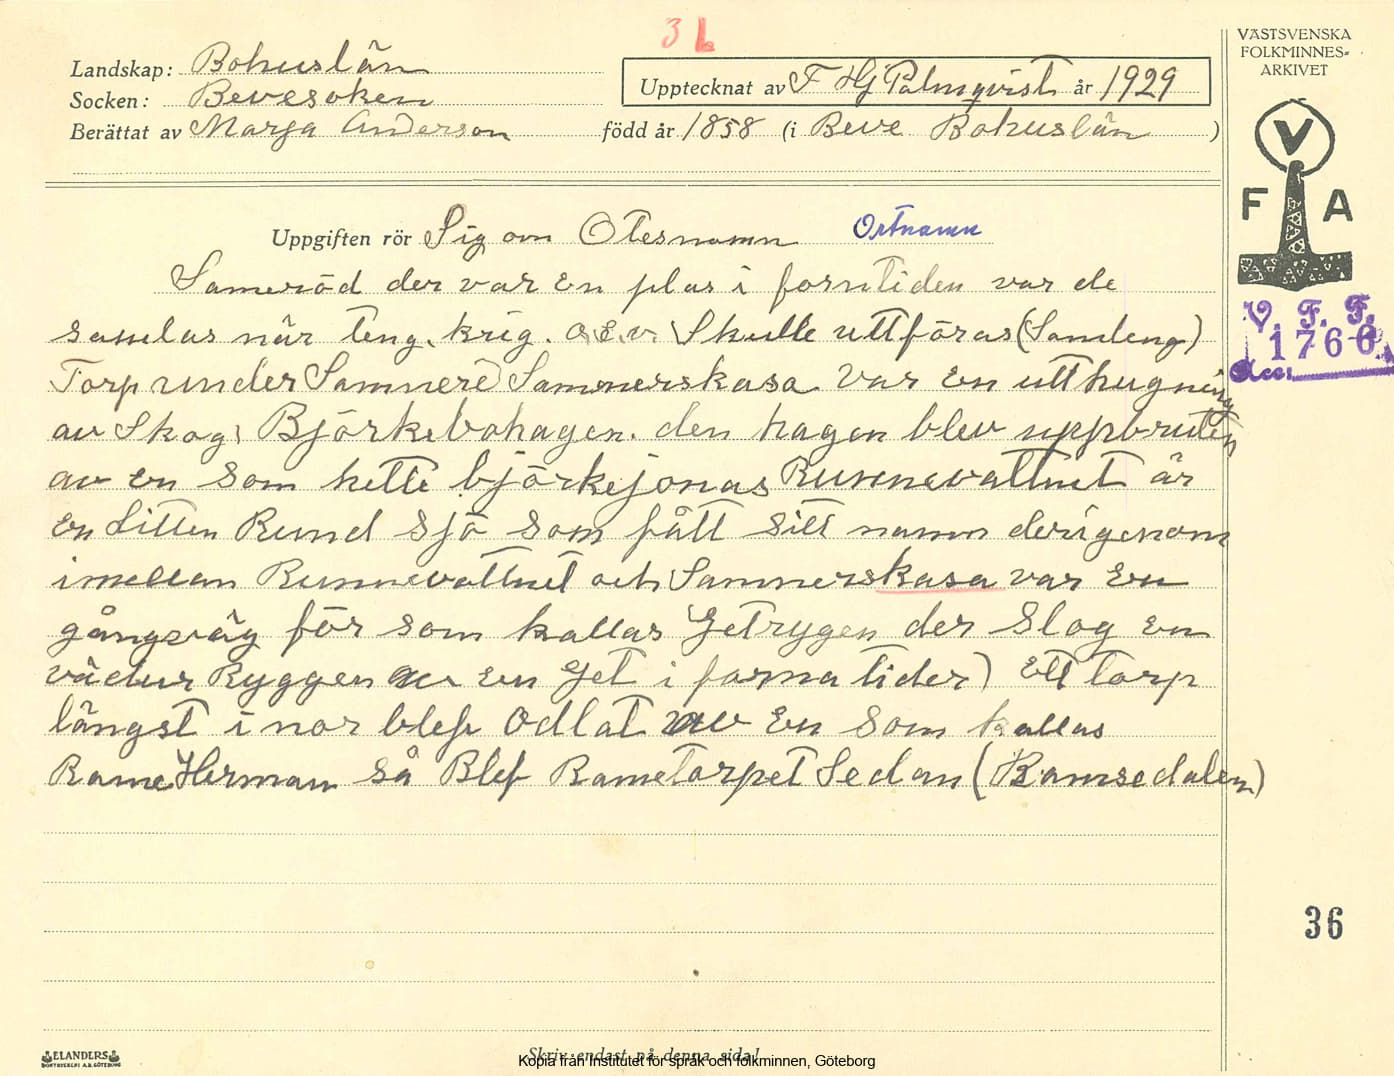 3 b
Landskap: Bohuslän
Socken: Bevesoken
Berättat av Marja Anderson
Upptecknat av F Hj Palmqvist år 1929
född år 1858 (i Beve Bohuslän )
VÄSTSVENSKA
FOLKMINNES-
ARKIVET
V
F A
V. F. F.
1766
acc:
Uppgiften rör Sig om Otesnamn Ortnamn
Sameröd der var en plas i forntiden var de
samlas när teng, krig. o.s.v. Skulle uttföras (Samleng)
Torp under Samnerö Samnerskasa var en utthugning
av Skog, Björkebohagen. den hagen blev uppbruten
av en som hette björkejonas Runnevattnet är
en Litten Rund Sjö som fått sitt namn derigenom
imellan Runnevattnet och Samnerskasa var en
gångsväg för som kallas Getrygen der Slog en
vädur Ryggen av en get i forna tider) Ett torp
längst i nor blef Odlat av en som kallas
Rame Herman så Blef Rametorpet Sedan (Ramsedalen)
36
ELANDERS
BOKTRYCKERI A.B. GÖTEBORG
Skriv endast på denna sida!
Kopia från Institutet för språk och folkminnen, Göteborg